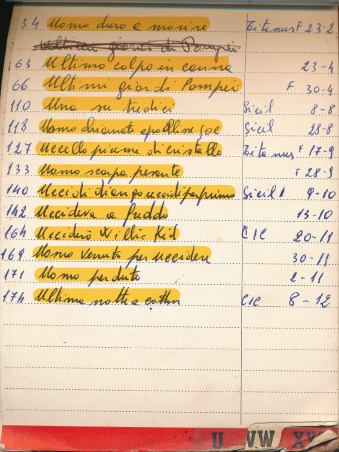 34 Uomo duro a morire Titanus F 23-2
Ultimi giorni di Pompei
63 Ultimo colpo in canna 23-4
66 Ultimi gior. di Pompei F 30-4
110 Una su tredici Sicil 8-8
118 Uomo chiamato apocalisse Joe Sicil 28-8
127 Uccello piume di cristallo Titanus F 17-9
133 Uomo scarpa pesante F 28-9
140 Uccidi django uccidi per primo Sicil 9-10
142 Uccideva a freddo 13-10
164 Ucciderò Willie Kid CIC 20-11
169 Uomo venuto per uccidere 30-11
171 Uomo perduto 2-11
174 Ultima notte a cotton CIC 8-12
U VW XY